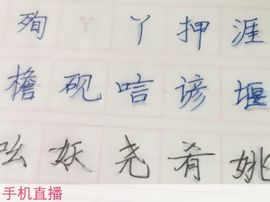 殉 丫 押 涯
檐 砚 唁 谚 堰
吆 妖 尧 肴 姚
手机直播